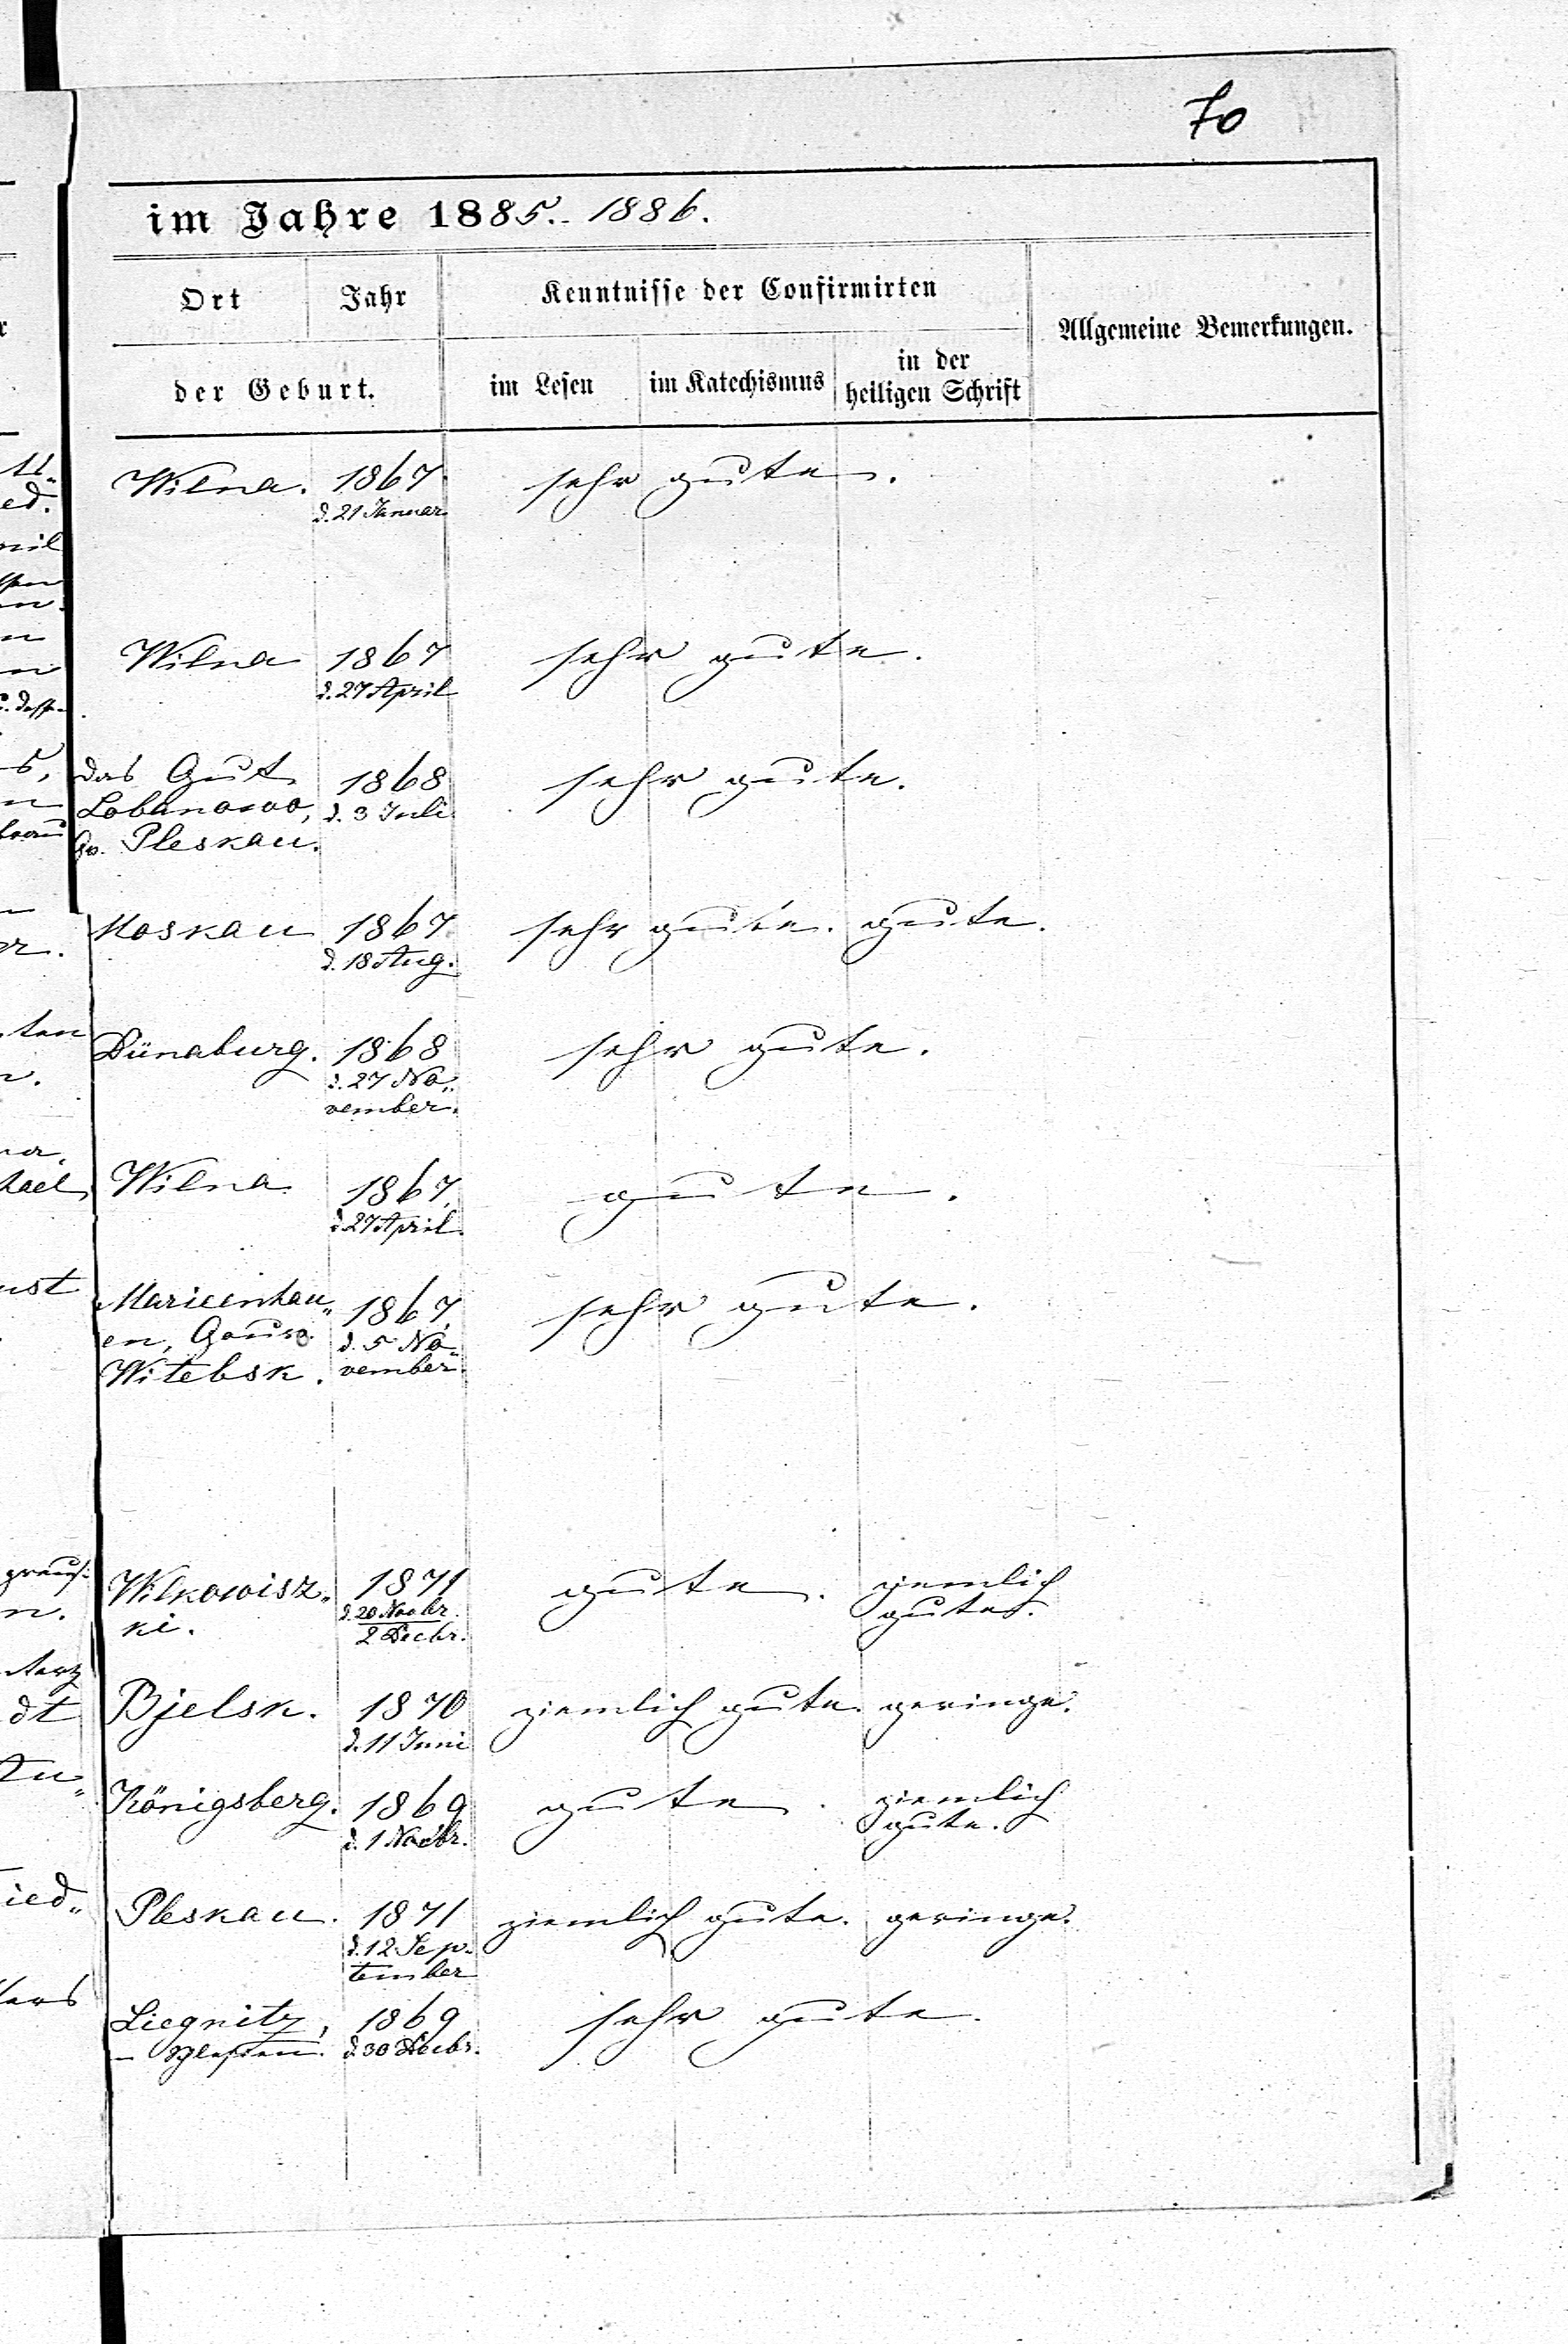 70
im Jahre 1885.-1886.
Ort Jahr Kenntnisse der Confirmirten
Allgemeine Bemerkungen.
der Geburt. im Lesen im Katechismus in der
heiligen Schrift
Wilna. 1867 sehr gute.
d. 21 Januar
Wilna 1867 sehr gute.
d. 27 April
das Gut 1868 sehr gute.
Lobanowo, d. 3 Juli
Gv. Pleskau.
Moskau 1867 sehr gute. gute.
d. 18 Aug.
Dünaburg. 1868 sehr gute.
d. 27 No„
vember.
Wilna 1867, gute.
d. 27 April.
Marieenhau„ 1867, sehr gute.
en, Gouv. d. 5 No„
Witebsk. vember.
Wilkowisz„ 1871 gute. ziemlich
ki. d. 20 Novbr. gute.
2 Decbr.
Bjelsk. 1870 ziemlich gute. geringe.
d. 11 Juni
Königsberg. 1869 gute. ziemlich
d. 1 Novbr. gute.
Pleskau. 1871 ziemlich gute. geringe.
d. 12 Sep-
tember
Liegnitz, 1869 sehr gute.
- Schlesien. d. 30 Decbr.